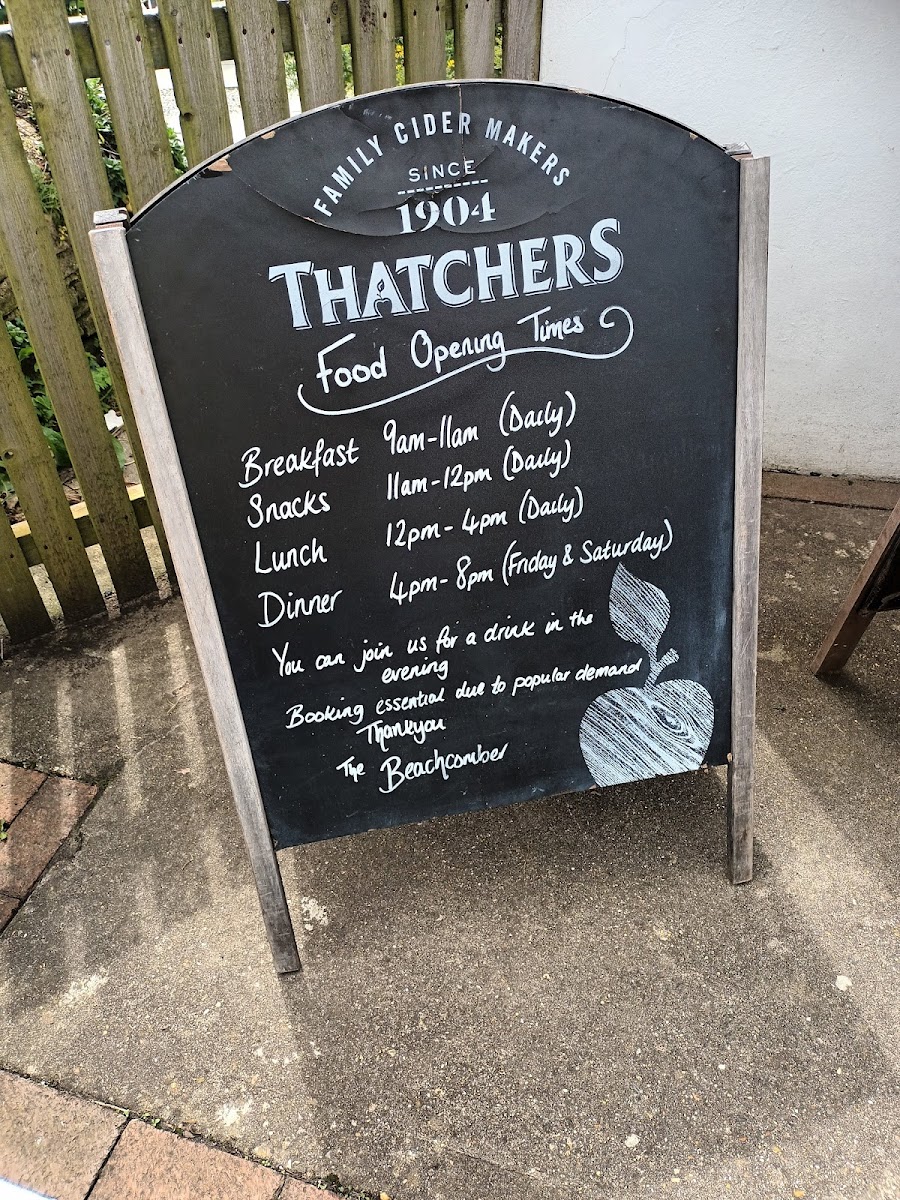 FAMILY CIDER MAKERS
SINCE
1904
THATCHERS
Food Opening Times
Breakfast 9am-11am (Daily)
Snacks 11am-12pm (Daily)
Lunch 12pm-4pm (Daily)
Dinner 4pm-8pm (Friday & Saturday)
You can join us for a drink in the
evening
Booking essential due to popular demand
Thankyou
The Beachcomber